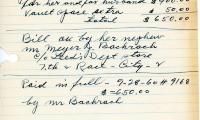 for her and for husband $400.00
Vault space extra 50.00
Total $650.00
Bill as by her nephew
Mr Meyer G Bachrach
c/o Leed's Dept store
7th & Race - City - 2
Paid in full - 9-28-60 # 9168
$-650.00
by Mr Bachrach